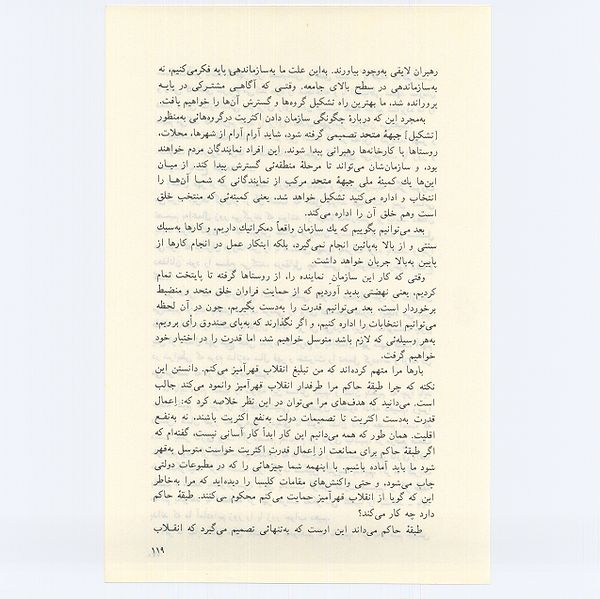 رهبران لایقی به‌وجود بیاورند. به‌این علت ما به‌سازماندهی پایه فکرمی‌کنیم، نه
به‌سازماندهی در سطح بالای جامعه. وقتی که آگاهی مشترکی در پایه
پرورانده شد، ما بهترین راه تشکیل گروه‌ها و گسترش آن‌ها را خواهیم یافت.
به‌مجرد این که دربارهٔ چگونگی سازمان دادن اکثریت درگروه‌هائی به‌منظور
[تشکیل] جبههٔ متحد تصمیمی گرفته شود، شاید آرام آرام از شهرها، محلات،
روستاها یا کارخانه‌ها رهبرانی پیدا شوند. این افراد نمایندگان مردم خواهند
بود، و سازمان‌شان می‌تواند تا مرحلهٔ منطقه‌ئی گسترش پیدا کند. از میان
این‌ها یك کمیتهٔ ملی جبههٔ متحد مرکب از نمایندگانی که شما آن‌ها را
انتخاب و اداره می‌کنید تشکیل خواهد شد، یعنی کمیته‌ئی که منتخب خلق
است وهم خلق آن را اداره می‌کند.
بعد می‌توانیم بگوییم که یك سازمان واقعاً دمکراتیك داریم، و کارها به‌سبك
سنتی و از بالا به‌پائین انجام نمی‌گیرد، بلکه ابتکار عمل در انجام کارها از
پایین به‌بالا جریان خواهد داشت.
وقتی که کار این سازمان نماینده را، از روستاها گرفته تا پایتخت تمام
کردیم، یعنی نهضتی پدید آوردیم که از حمایت فراوان خلق متحد و منضبط
برخوردار است، بعد می‌توانیم قدرت را به‌دست بگیریم، چون در آن لحظه
می‌توانیم انتخابات را اداره کنیم، و اگر نگذارند که به‌پای صندوق رأی برویم،
به‌هر وسیله‌ئی که لازم باشد متوسل خواهیم شد، اما قدرت را در اختیار خود
خواهیم گرفت.
بارها مرا متهم کرده‌اند که من تبلیغ انقلاب قهرآمیز می‌کنم. دانستن این
نکته که چرا طبقهٔ حاکم مرا طرفدار انقلاب قهرآمیز وانمود می‌کند جالب
است. می‌دانید که هدف‌های مرا می‌توان در این نظر خلاصه کرد که: اِعمال
قدرت به‌دست اکثریت تا تصمیمات دولت به‌نفع اکثریت باشند، نه به‌نفع
اقلیت. همان طور که همه می‌دانیم این کار ابداً کار آسانی نیست، گفته‌ام که
اگر طبقهٔ حاکم برای ممانعت از اِعمال قدرتِ اکثریت خواست متوسل به‌قهر
شود ما باید آماده باشیم. با اینهمه شما چیزهائی را که در مطبوعات دولتی
چاپ می‌شود، و حتی واکنش‌های مقامات کلیسا را دیده‌اید که مرا به‌خاطر
این که گویا از انقلاب قهرآمیز حمایت می‌کنم محکوم می‌کنند. طبقهٔ حاکم
دارد چه کار می‌کند؟
طبقهٔ حاکم می‌داند این اوست که به‌تنهائی تصمیم می‌گیرد که انقلاب
۱۱۹